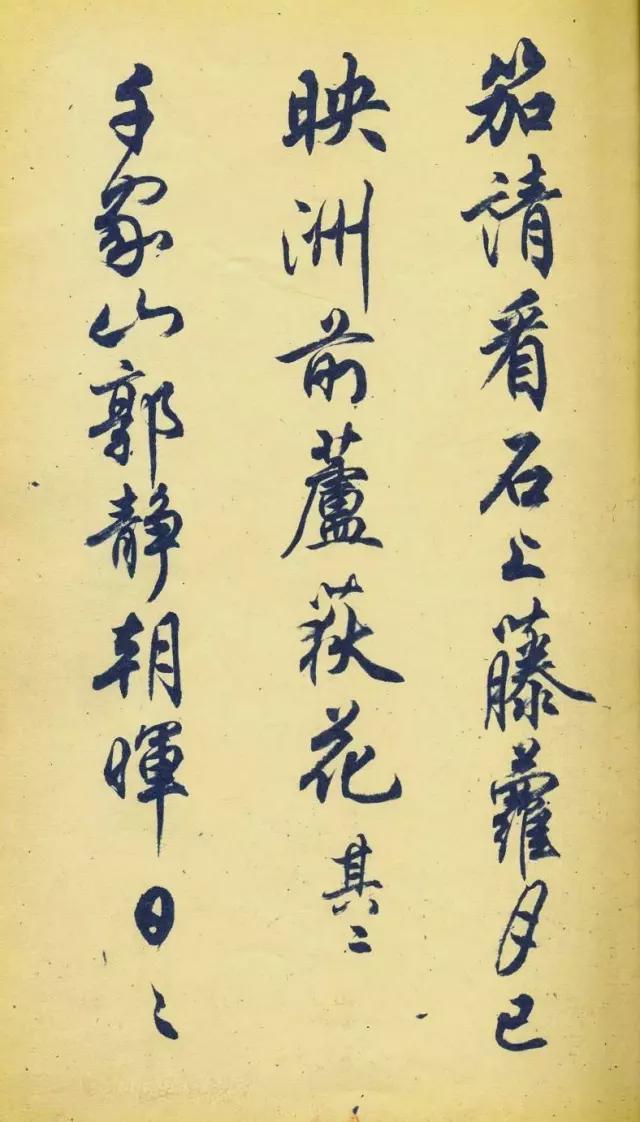 笳請看石上藤蘿月已
映洲前蘆荻花 其二
千家山郭静朝暉日〻